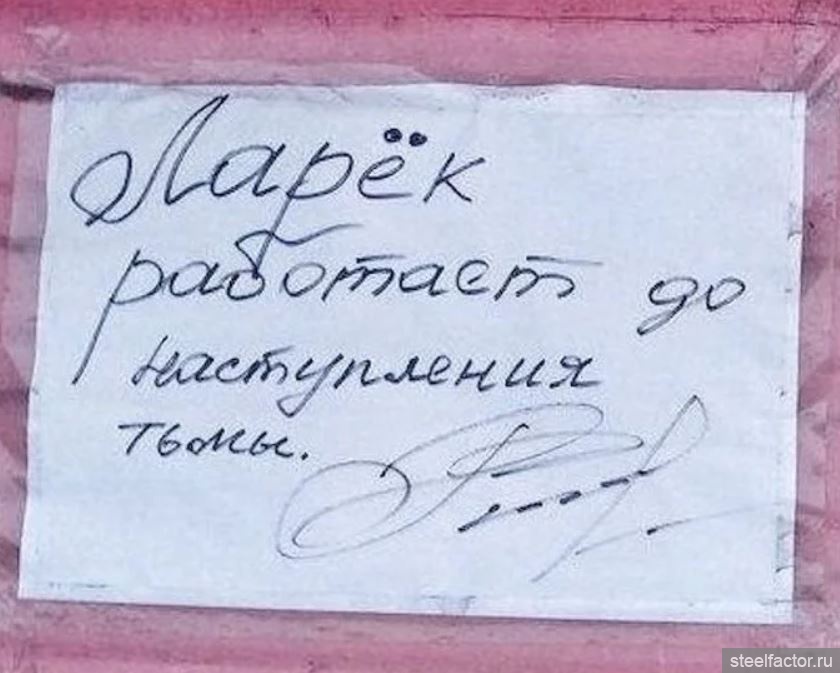 Ларёк
работает до
наступления
тьмы.
steelfactor.ru